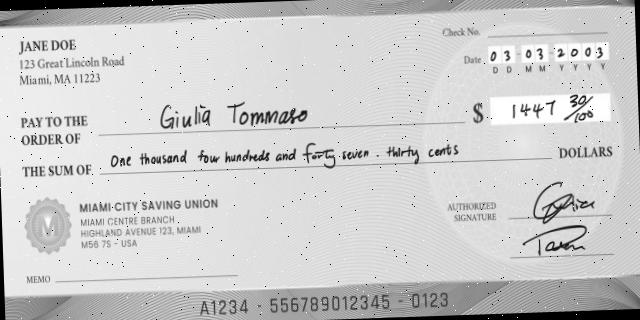 JANE DOE
123 Great Lincoln Road
Miami, MA 11223
Check No.
Date 03 03 2003
D D M M Y Y Y Y
PAY TO THE ORDER OF Giulia Tommaso
$ 1447 30/100
THE SUM OF One thousand four hundreds and forty seven . thirty cents DOLLARS
MIAMI-CITY SAVING UNION
MIAMI CENTRE BRANCH
HIGHLAND AVENUE 123, MIAMI
M56 7S - USA
AUTHORIZED
SIGNATURE
MEMO
A1234 - 556789012345 - 0123